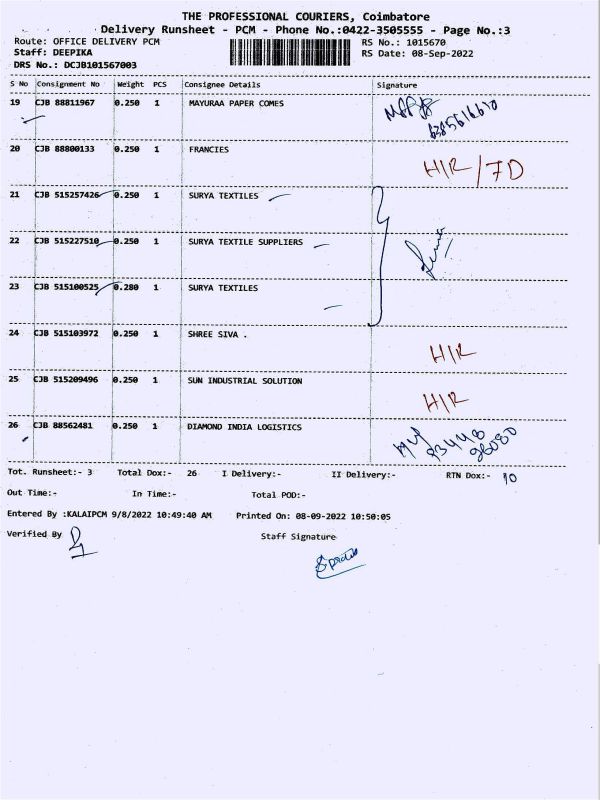 THE PROFESSIONAL COURIERS, Coimbatore
Delivery Runsheet - PCM - Phone No.:0422-3505555 - Page No.:3
Route: OFFICE DELIVERY PCM
RS No.: 1015670
Staff: DEEPIKA
RS Date: 08-Sep-2022
DRS No.: DCJB101567003
S No Consignment No Weight PCS Consignee Details Signature
19 CJB 88811967 0.250 1 MAYURAA PAPER COMES
20 CJB 88800133 0.250 1 FRANCIES H/R/7D
21 CJB 515257426 0.250 1 SURYA TEXTILES
22 CJB 515227510 0.250 1 SURYA TEXTILE SUPPLIERS
23 CJB 515100525 0.280 1 SURYA TEXTILES
24 CJB 515103972 0.250 1 SHREE SIVA . H/R
25 CJB 515209496 0.250 1 SUN INDUSTRIAL SOLUTION H/R
26 CJB 88562481 0.250 1 DIAMOND INDIA LOGISTICS
Tot. Runsheet:- 3 Total Dox:- 26 I Delivery:- II Delivery:- RTN Dox:- 10
Out Time:- In Time:- Total POD:-
Entered By :KALAIPCM 9/8/2022 10:49:40 AM Printed On: 08-09-2022 10:50:05
Verified By Staff Signature